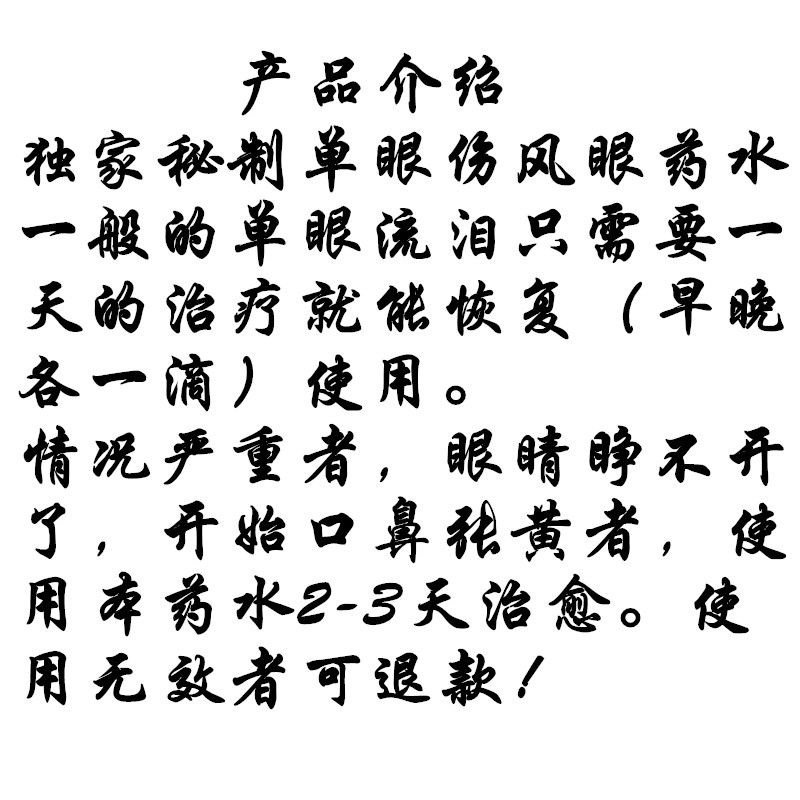 产品介绍
独家秘制单眼伤风眼药水
一般的单眼流泪只需要一
天的治疗就能恢复（早晚
各一滴）使用。
情况严重者，眼睛睁不开
了，开始口鼻张黄者，使
用本药水2-3天治愈。使
用无效者可退款！